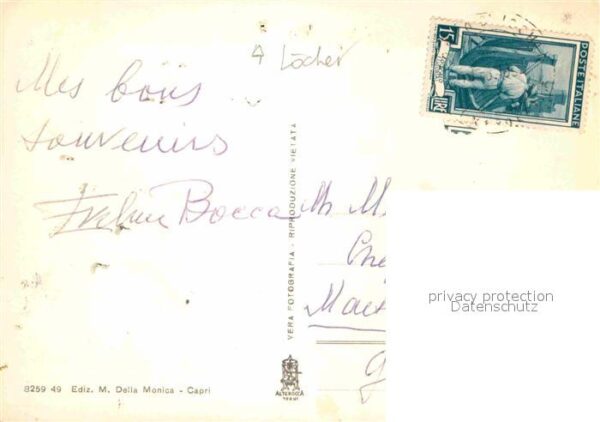 4 Locher
POSTE ITALIANE
LIRE 15
Mes bons
souvenirs
Bocca
Mr M
Che
VERA FOTOGRAFIA - RIPRODUZIONE VIETATA
privacy protection
Datenschutz
8259 49 Ediz. M. Della Monica - Capri
ALTEROCCA
TERNI